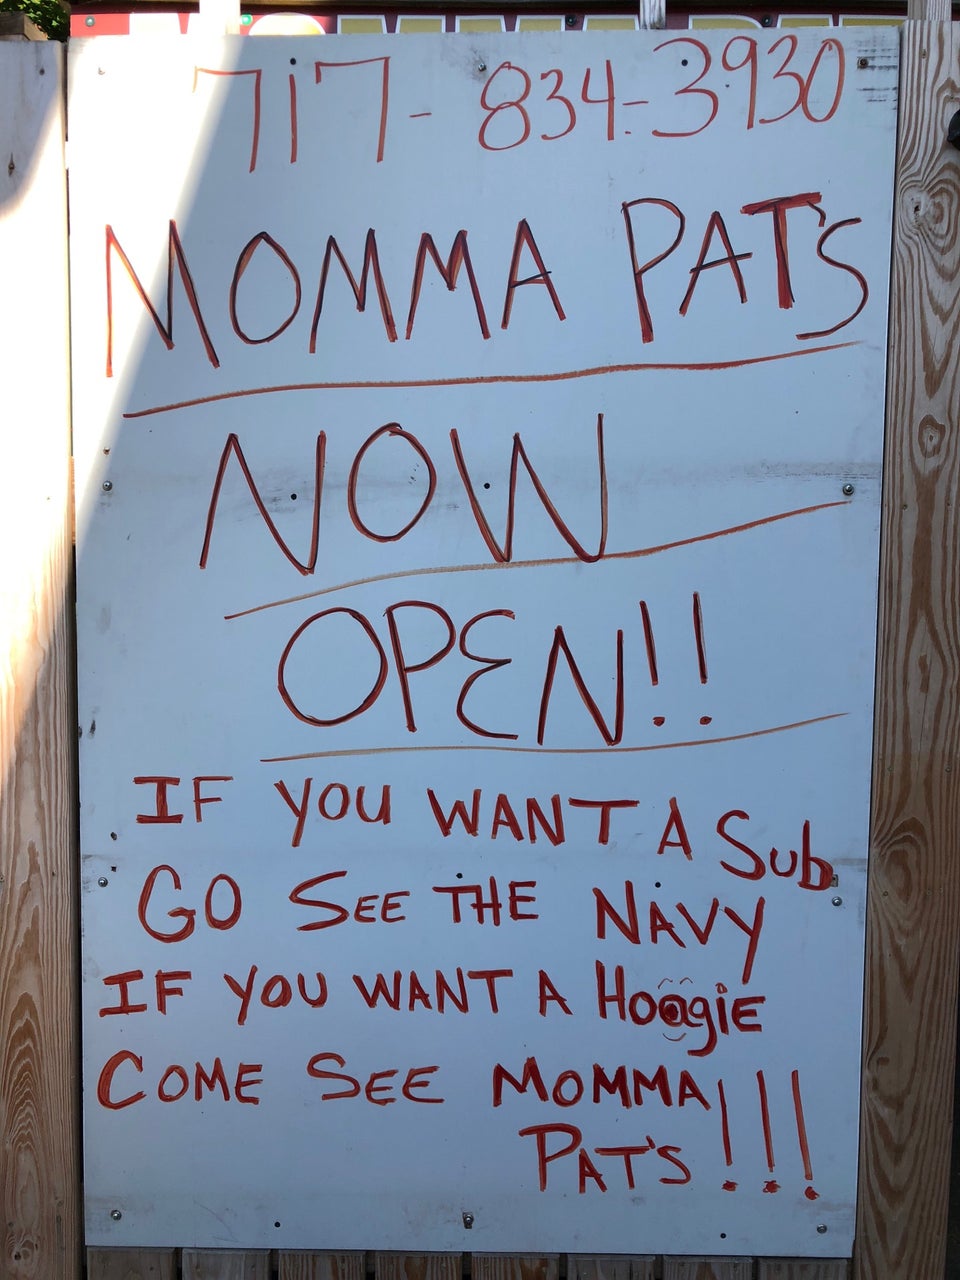 717-834-3930
MOMMA PAT'S
NOW
OPEN!!
IF YOU WANT A Sub
GO SEE THE NAVY
IF YOU WANT A HOagIE
COME SEE MOMMA
PAT'S!!!